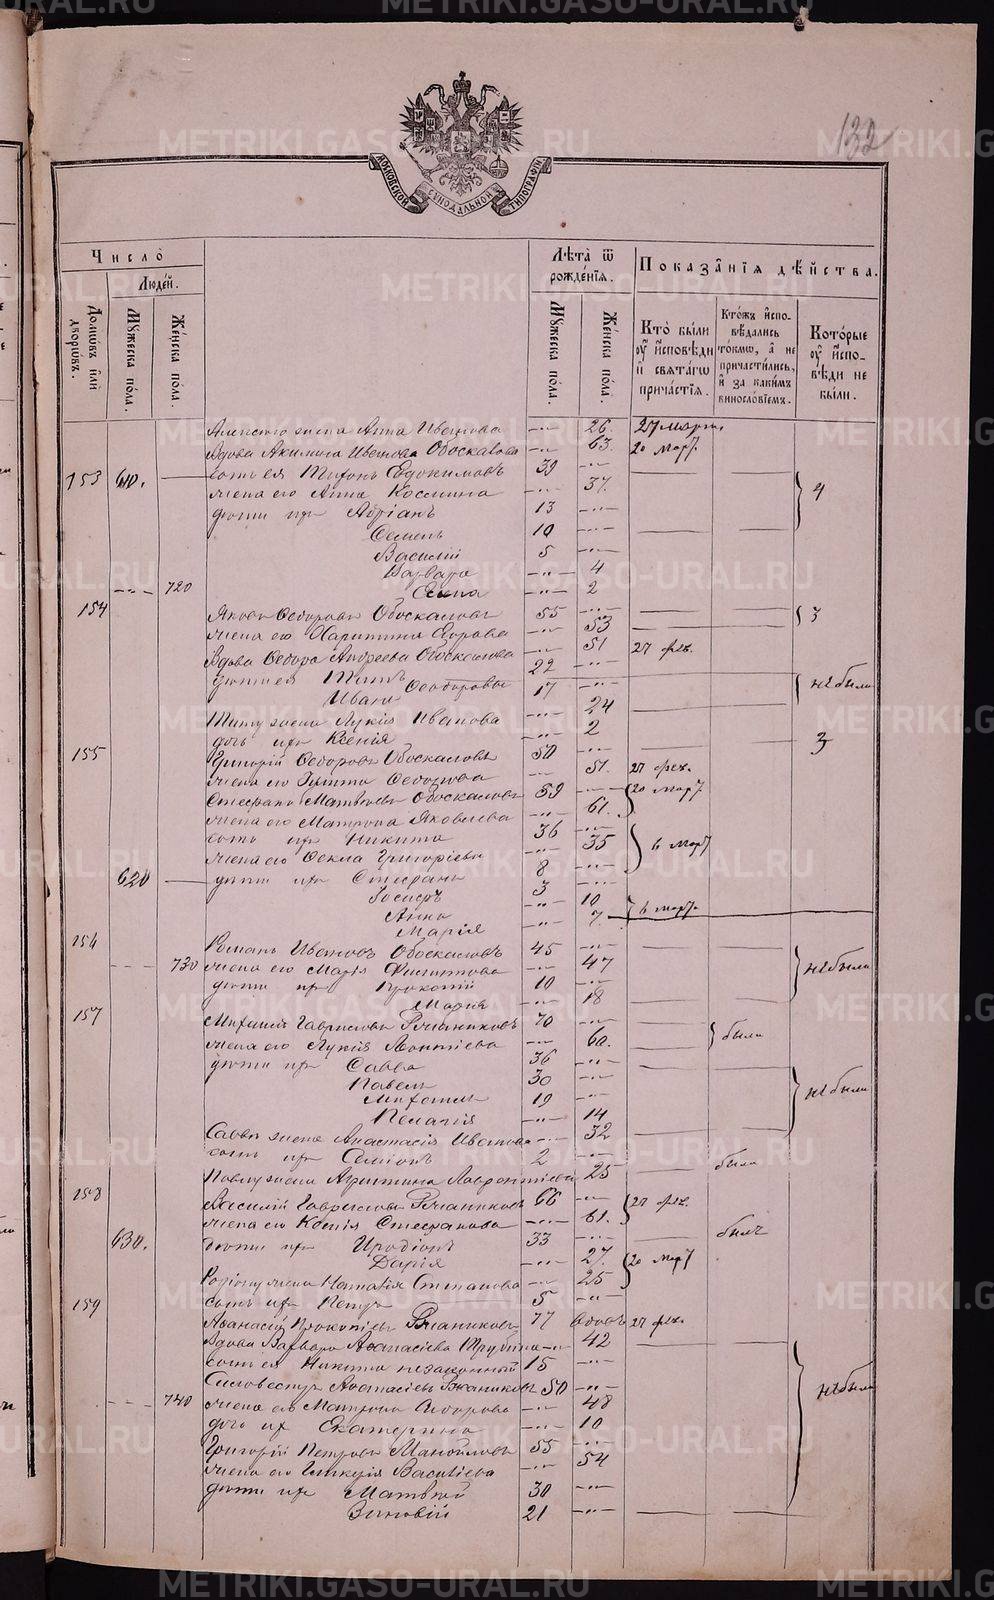 132
МОСКОВСКОЙ СѴНОДАЛЬНОЙ ТИПОГРАФІИ
Число
Людей.
Домовъ или дворовъ.
Мужеска пола.
Женска пола.
Лѣта ѿ рожденія.
Мужеска пола.
Женска пола.
Показанія дѣйства.
Кто были у исповѣди и святагѡ причастія.
Ктожъ исповѣдались токмѡ, а не причастились, и за какимъ винословіемъ.
Которые у исповѣди не были.
жена Анна Иванова -"- 26 27 марта
Вдова Акилина Иванова Обоскалова -"- 63 20 март
153 610. сынъ ея Тихонъ Евдокимовъ 39 -"-
жена его Анна Космина -"- 37 4
дѣти ихъ Адріанъ 13 -"-
Семенъ 10 -"-
Василій 5 -"-
Варвара -"- 4
-"- 720 Анна -"- 2
154 Яковъ Ѳедоровъ Обоскаловъ 55 -"- 3
жена его Харитина -"- 53
Вдова Андреева Обоскалова -"- 51 27 фев.
дѣти ея Титъ 22 -"-
Иванъ Ѳедоровы 17 -"- не были
Титу жена Лукія Иванова -"- 24
дочь ихъ Ксенія -"- 2
155 Григорій Ѳедоровъ Обоскаловъ 50 -"- 3
жена его Ѳедотова -"- 51 27 фев.
Стефанъ Матвѣевъ Обоскаловъ 59 -"- 20 март
жена его Матрона Яковлева -"- 61.
сынъ ихъ Никита 36 -"-
жена его Ѳекла Григоріева -"- 35 6 март
620 дѣти ихъ Стефанъ 8 -"-
Іосифъ 3 -"-
Анна -"- 10
Марія -"- 7 6 март
Романъ Ивановъ Обоскаловъ 45 -"-
-"- 730 жена его Марія Филиппова -"- 47 не были
дѣти ихъ Прокопій 10 -"-
Марія -"- 18
157 Михаилъ Гавриловъ 70 -"-
жена его Лукія Леонтіева -"- 60. были
дѣти ихъ Савва 36 -"-
Павелъ 30 -"-
Михаилъ 19 -"- не были
Пелагія -"- 14
Саввы жена Анастасія Иванова -"- 32
сынъ ихъ Семіонъ 2 -"-
Павлу жена Лаврентіева 25 были
158 Василій Гавриловъ 66 -"- 27 фев.
жена его Ксенія Стефанова -"- 61.
630. дѣти ихъ Иродіонъ 33 -"- были
Дарія -"- 27. 20 март
Родіону жена Наталія Степанова -"- 25
159 сынъ ихъ Петръ 5 -"-
Аѳанасій Прокопіевъ 77 вдовъ 27 фев.
Вдова Варвара Аѳанасіева Трубина -"- 42
сынъ ея Никита незаконный 15 -"-
Силовестръ Аѳанасіевъ 50 -"- не были
-"- 740 жена его Матрона -"- 48
дочь их Екатерина -"- 10
Григорій Петровъ Манойловъ 55 -"-
жена его Гликерія Василіева -"- 54
дѣти ихъ Матвѣй 30 -"-
Зиновій 21 -"-
METRIKI.GASO-URAL.RU